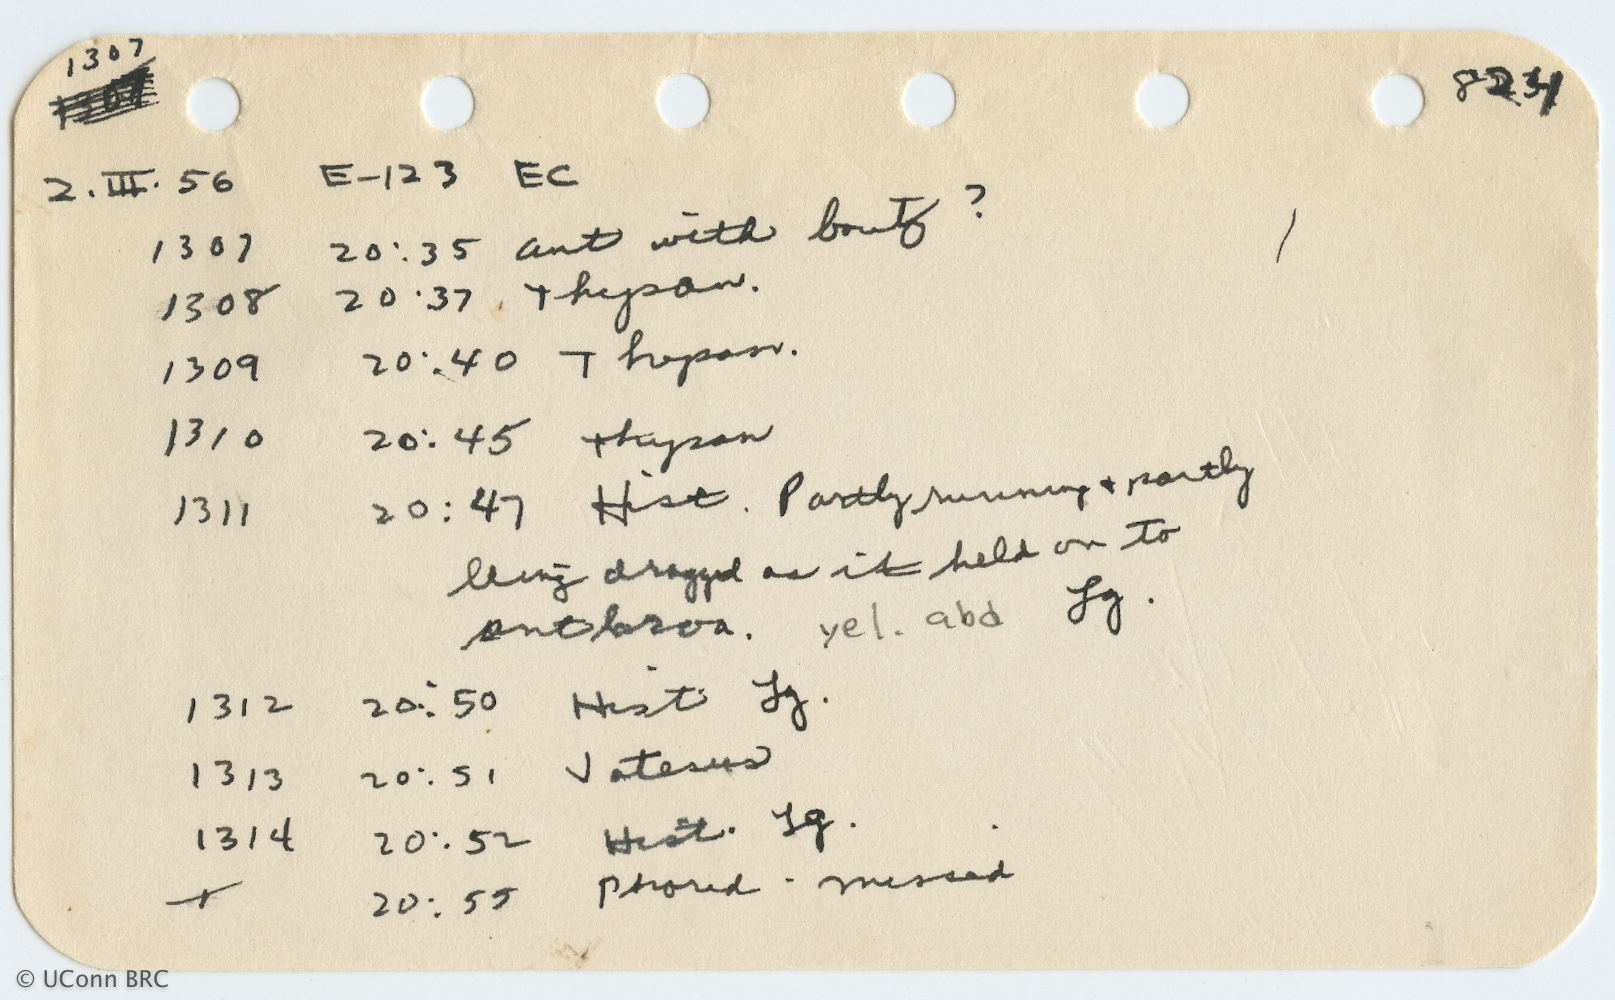 1307
8231
2.III.56 E-123 EC
1307 20:35 ant with booty ?
1308 20:37 Thysan.
1309 20:40 Thysan.
1310 20:45 thysan
1311 20:47 Hist. Partly running + partly
being dragged as it held on to
ant larva. yel. abd Lg.
1312 20:50 Hist Lg.
1313 20:51 Vatesus
1314 20:52 Hist. Lg.
+ 20:55 Phorid - missed
© UConn BRC